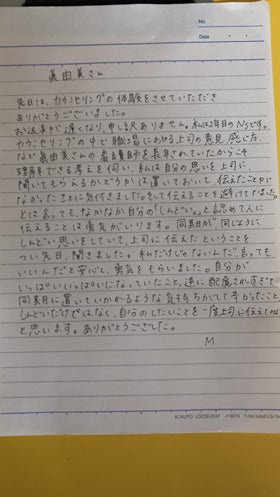 No.
Date
眞由美さん
先日は、カウンセリングの体験をさせていただき
ありがとうございました。
お返事が遅くなり、申し訳ありません。私は2年目のNsです。
カウンセリングの中で職場における上司の意見、感じ方、
など眞由美さんの看護師を長年されていたからこそ
理解できる考えを伺い、私は自分の思いを上司に
聞いてもらえるかどうかは置いておいて、伝えたことが
なかったことに気付きました。そして伝えることを避けてきました。
とは言ってもなかなか自分の「しんどい。」を認めて人に
伝えることは勇気がいります。同期が、同じように
しんどい思いをしていて、上司に伝えたということを
つい先日、聞きました。私だけじゃないんだ、言っても
いいんだと安心し、勇気をもらいました。自分が
いっぱいいっぱいになっていたこと、逆に配慮されすぎて
同期に置いていかれるような気持ちがして辛かったこと、
しんどいだけではなく、自分のしたいことを一度上司に伝えてみよう
と思います。ありがとうございました。
M
KOKUYO LOOSE-LEAF